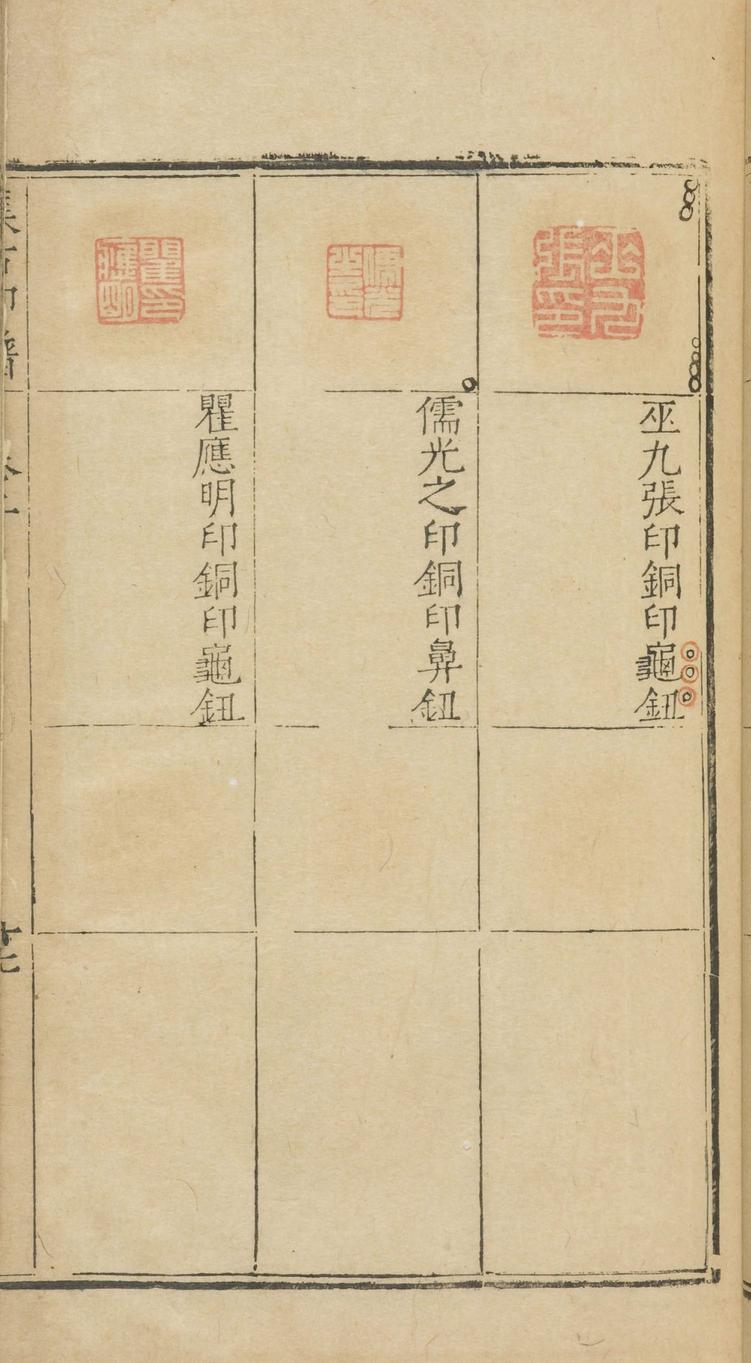 巫九張印銅印龜鈕
儒光之印銅印鼻鈕
瞿應明印銅印龜鈕
集古印譜